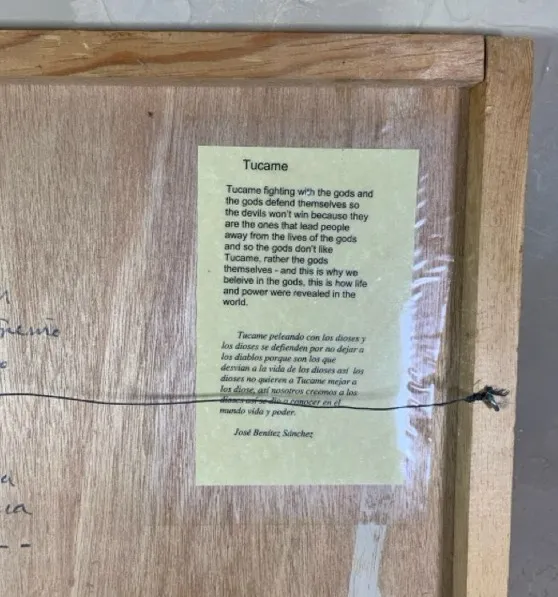 Tucame
Tucame fighting with the gods and
the gods defend themselves so
the devils won't win because they
are the ones that lead people
away from the lives of the gods
and so the gods don't like
Tucame, rather the gods
themselves - and this is why we
beleive in the gods, this is how life
and power were revealed in the
world.
Tucame peleando con los dioses y
los dioses se defienden por no dejar a
los diablos porque son los que
desvian a la vida de los dioses así los
dioses no quieren a Tucame mejor a
los diose, así nosotros creemos a los
dioses así se dio a conocer en el
mundo vida y poder.
José Benítez Sánchez